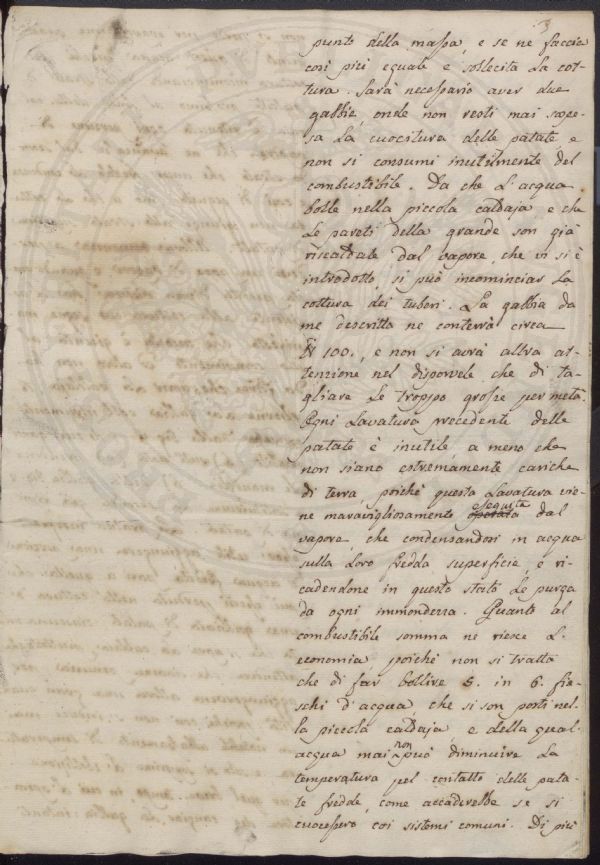 3
punto della massa, e se ne faccia
così più eguale e sollecita la cot-
tura. Sarà necessario aver due
gabbie, onde non resti mai sospe-
sa la cuocitura delle patate, e
non si consumi inutilmente del
combustibile. Da che l'acqua
bolle nella piccola caldaja, e che
le pareti della grande son già
riscaldate dal vapore, che vi si è
introdotto, si può incominciar la
cottura dei tuberi. La gabbia da
me descritta ne conterrà circa
100., e non si avrà altra at-
tenzione nel disporvele che di ta-
gliare le troppo grosse per metà.
Ogni lavatura precedente delle
patate è inutile, a meno che
non siano estremamente cariche
di terra, poichè questa lavatura vie-
ne maravigliosamente operata eseguita dal
vapore, che condensandosi in acqua
sulla loro fredda superficie, e ri-
cadendone in questo stato le purga
da ogni immondezza. Quanto al
combustibile somma ne riesce l'
economia, poichè non si tratta
che di far bollire 5. in 6. fia-
schi d'acqua, che si son posti nel-
la piccola caldaja, e della qual-
acqua mai non può diminuire la
temperatura pel contatto delle pata-
te fredde, come accaderebbe se si
cuocessero coi sistemi comuni. Di più